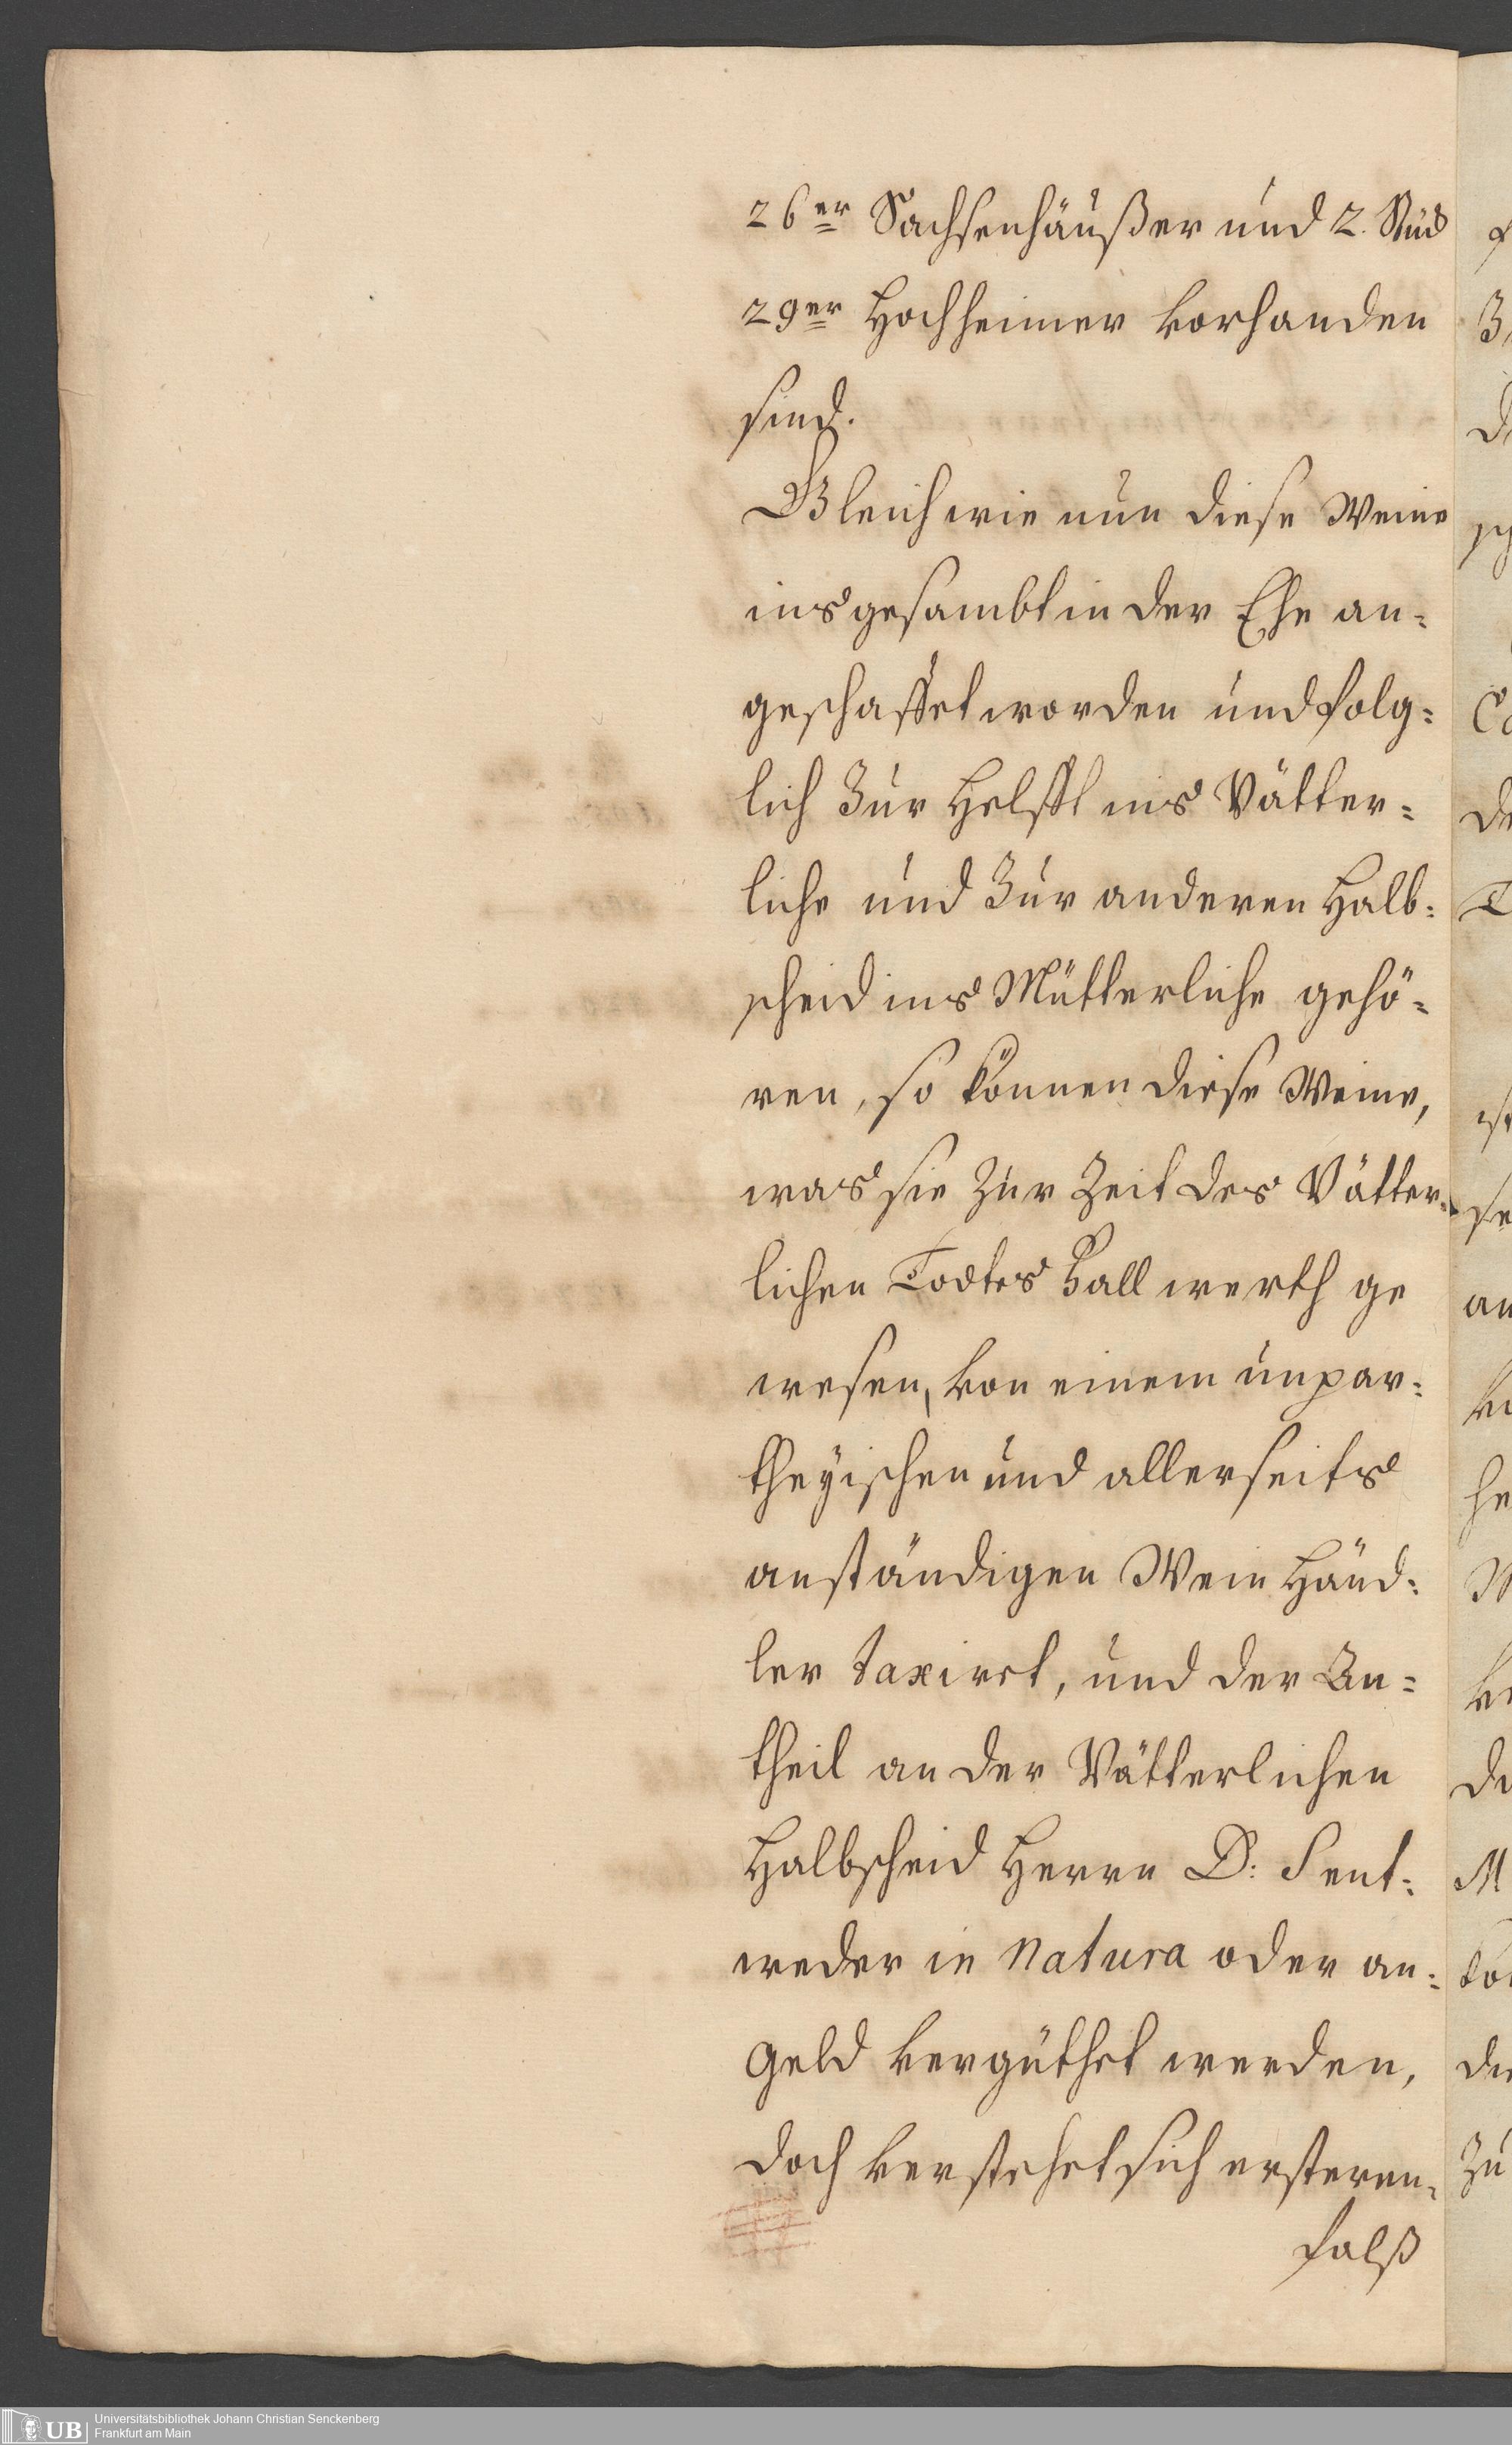 26er Sachsenhäußer und 2. Stück
29er Hochheimer vorhanden
sind.
Gleichwie nun diese Weine
ins gesambt in der Ehe an-
geschaffet worden und folg-
lich Zur Helfft ins Vätter-
liche und Zur anderen Halb-
scheid ins Mütterliche gehö-
ren, so können diese Weine,
was sie Zur Zeit des Vätter-
lichen Todtes Fall werth ge
wesen, von einem unpar-
theyischen und allerseits
anständigen Wein Händ-
ler taxiret, und der An-
theil an der Vätterlichen
Halbscheid Herrn D: S ent-
weder in Natura oder an-
Geld vergüthet werden,
doch verstehet sich ersteren-
falß
UB
Universitätsbibliothek Johann Christian Senckenberg
Frankfurt am Main